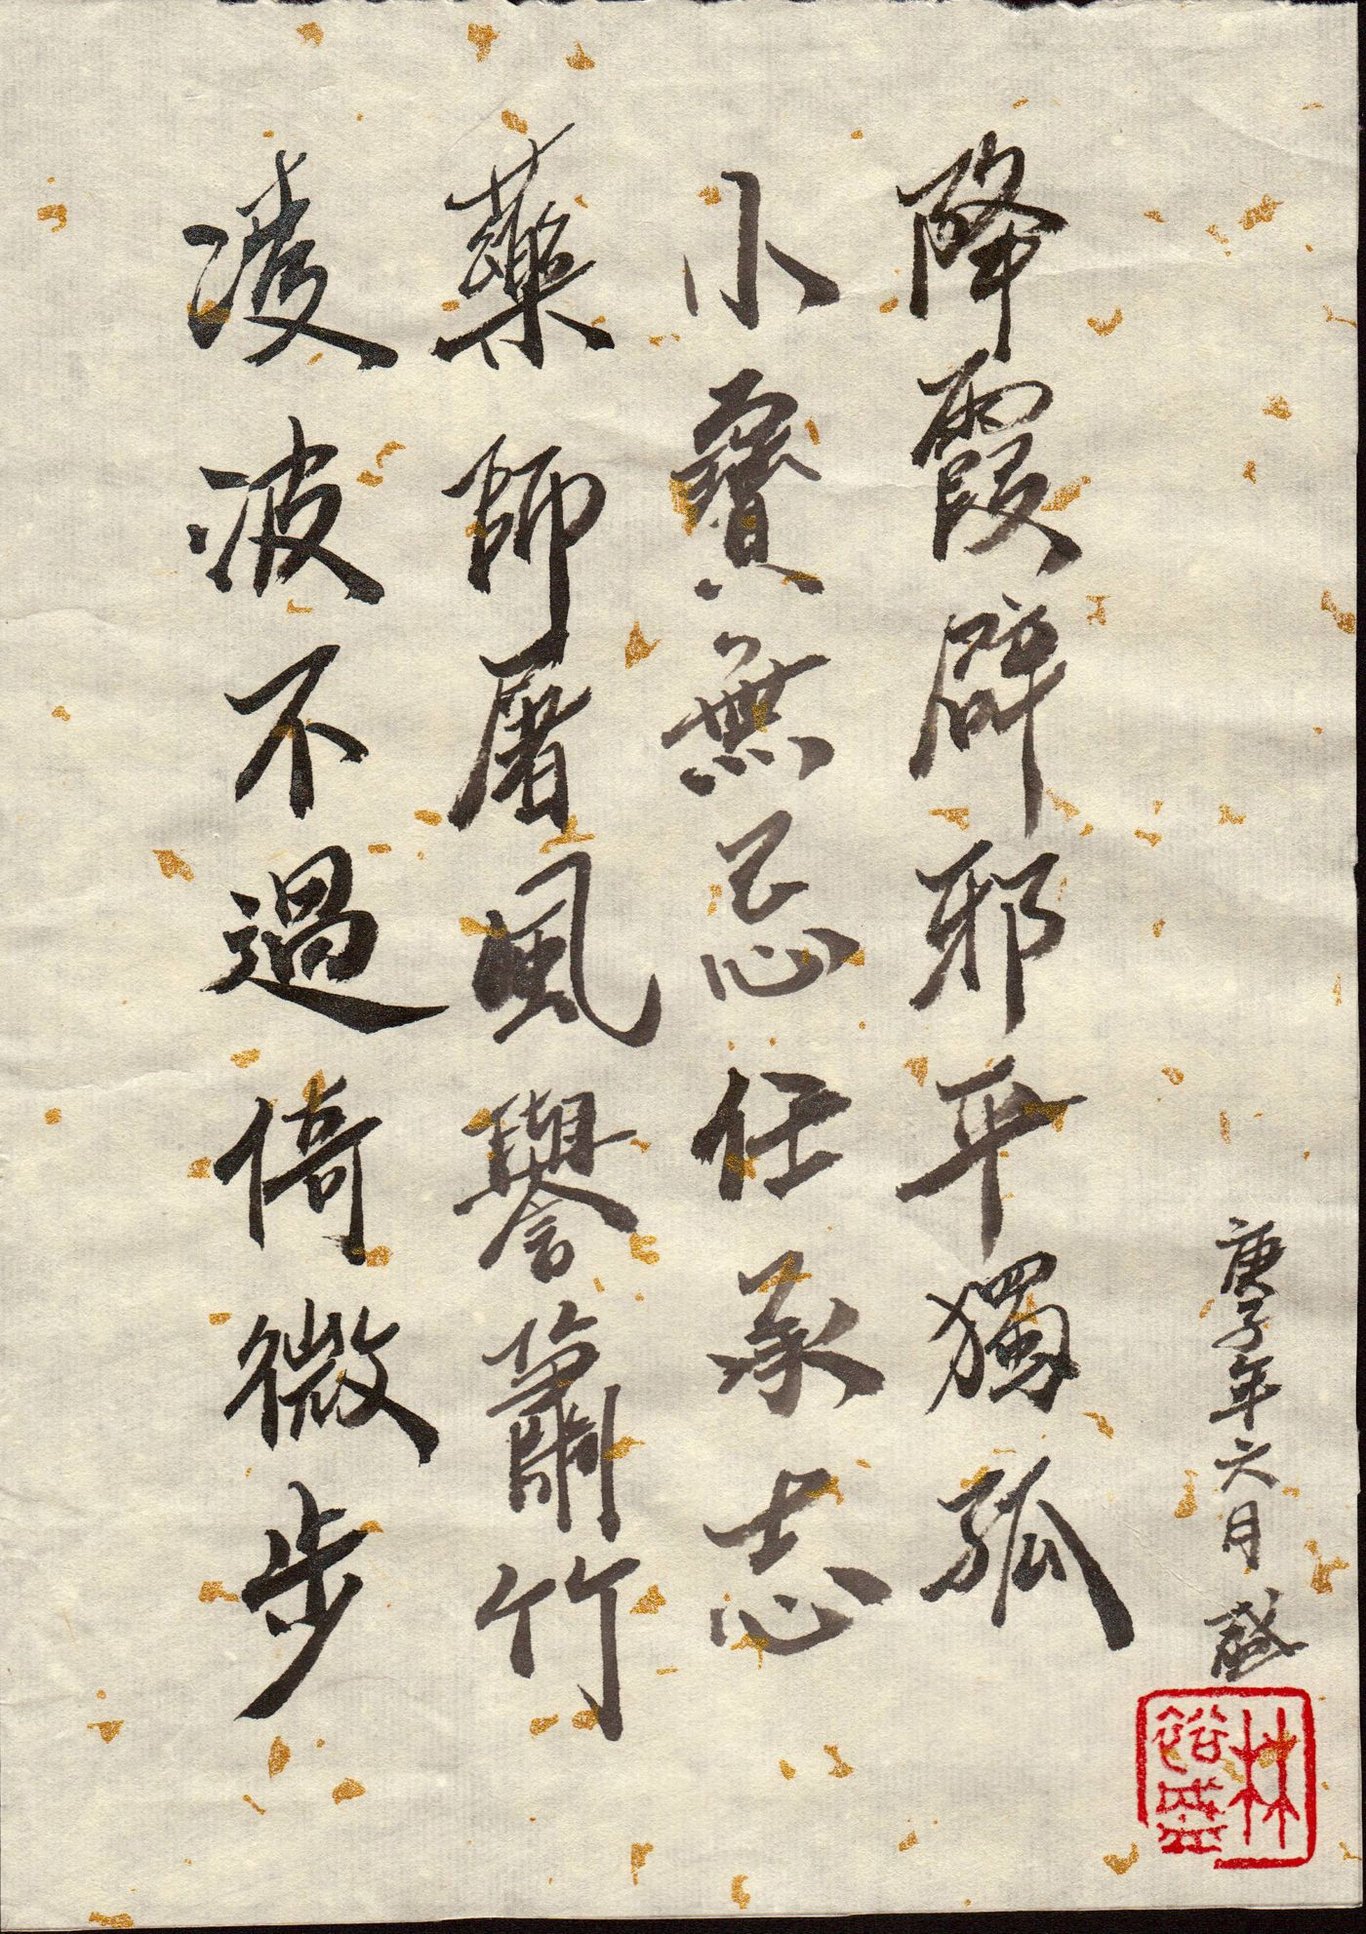 庚子年六月
林裕盛
降霞辟邪平獨孤
小寶無忌任承志
藥師屠風譽簫竹
凌波不過倚微步